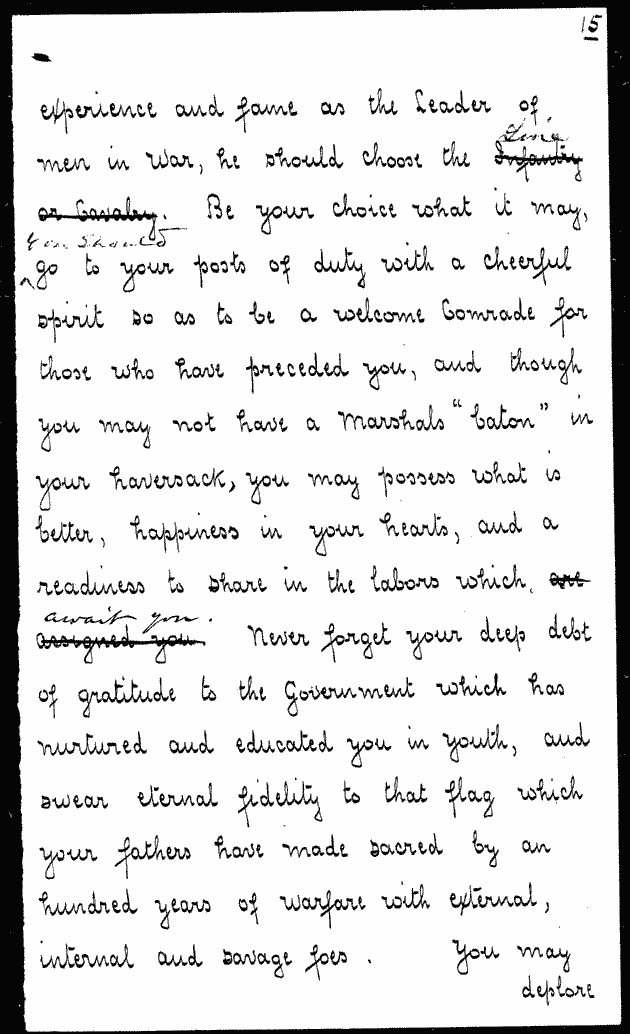 15
experience and fame as the Leader of
Line
men in War, he should choose the Infantry
or Cavalry. Be your choice what it may,
you should
go to your posts of duty with a cheerful
spirit so as to be a welcome Comrade for
those who have preceded you, and though
you may not have a Marshals "baton" in
your haversack, you may possess what is
better, happiness in your hearts, and a
readiness to share in the labors which are
await you.
assigned you. Never forget your deep debt
of gratitude to the Government which has
nurtured and educated you in youth, and
swear eternal fidelity to that flag which
your fathers have made sacred by an
hundred years of warfare with external,
internal and savage foes. You may
deplore